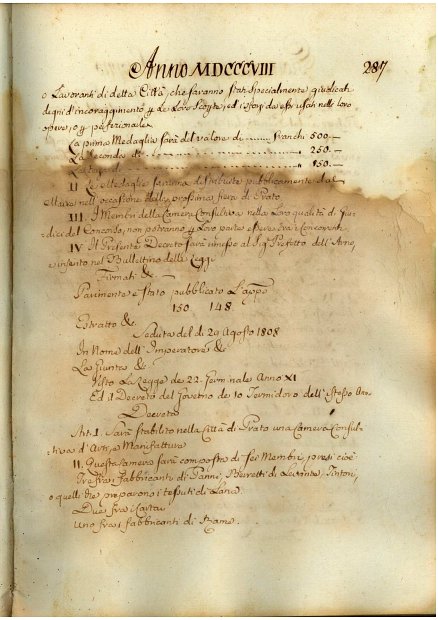 Anno MDCCCVIII 287
o Lavoranti di detta Città, che saranno stati specialmente giudicati
degni d'incoraggimento le Loro Scoperte, ed i saggi da essi usati nelle loro
opere, o
La prima Medaglia sarà del valore di Franchi 500.—
La Seconda di 250.—
La terza di 150.—
II Le Medaglie saranno distribuite pubblicamente dal
Maire nell' occasione della prossima fiera di Prato
III. I Membri della Camera Consultiva, nella Loro qualità di Giu-
dici del Concorso, non potranno Loro parte essere fra i Concorrenti
IV Il Presente Decreto sarà rimesso al Sig. Prefetto dell' Arno,
e inserito nel Bullettino delle Leggi
Firmati &
Parimente è stato pubblicato L'appo
150 148.
Estratto &
Seduta del dì 20 Agosto 1808
In Nome dell' Imperatore &
La Giunta &
Visto La Legge de 22. Germinale Anno XI
Ed il Decreto del Governo de 10 Termidoro dell' istesso An.
Decreta
Art. I. Sarà stabilito nella Città di Prato una Camera Consul-
tiva d'Arti, e Manifatture
II. Questa Camera sarà composta di sei Membri, presi cioè
Tre fra i Fabbricanti di Panni, Berretti di Levante, Tintori,
o quelli che preparono i tessuti di Lana.
Due fra i Cartai
Uno fra i fabbricanti di Rame.